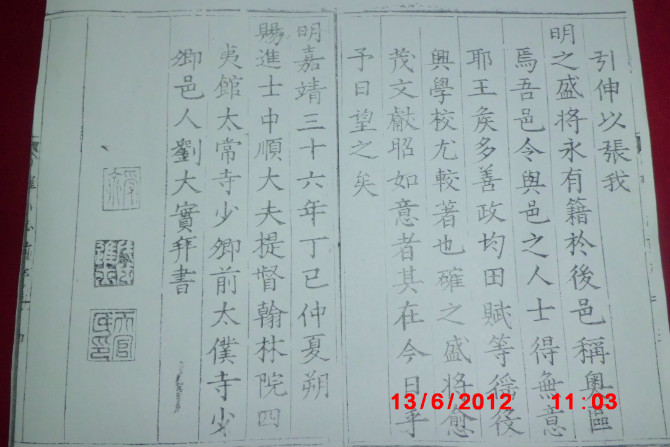 引伸以張我
明之盛将永有籍於後邑稱奧區
焉吾邑令與邑之人士得無意
耶王矦多善政均田賦等徭役
興學校尤較著也確之盛將愈
茂文獻昭如意者其在今日乎
予日望之矣
明嘉靖三十六年丁巳仲夏朔
賜進士中順大夫提督翰林院四
夷館太常寺少卿前太僕寺少
卿邑人劉大實拜書
13/6/2012 11:03